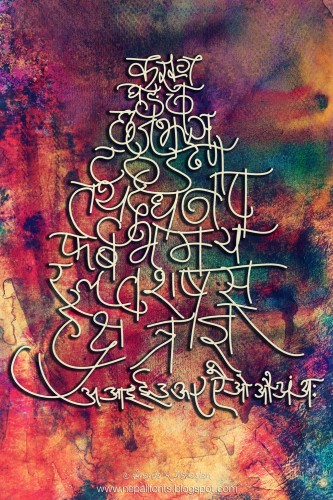 क ख ग
घ ङ च
छ ज झ ञ
ट ठ ड ढ ण
त थ द ध न प
फ ब भ म य
र ल व श ष स
ह क्ष त्र ज्ञ
अ आ इ ई उ ऊ ए ऐ ओ औ अं अः
www.nepalifonts.blogspot.com